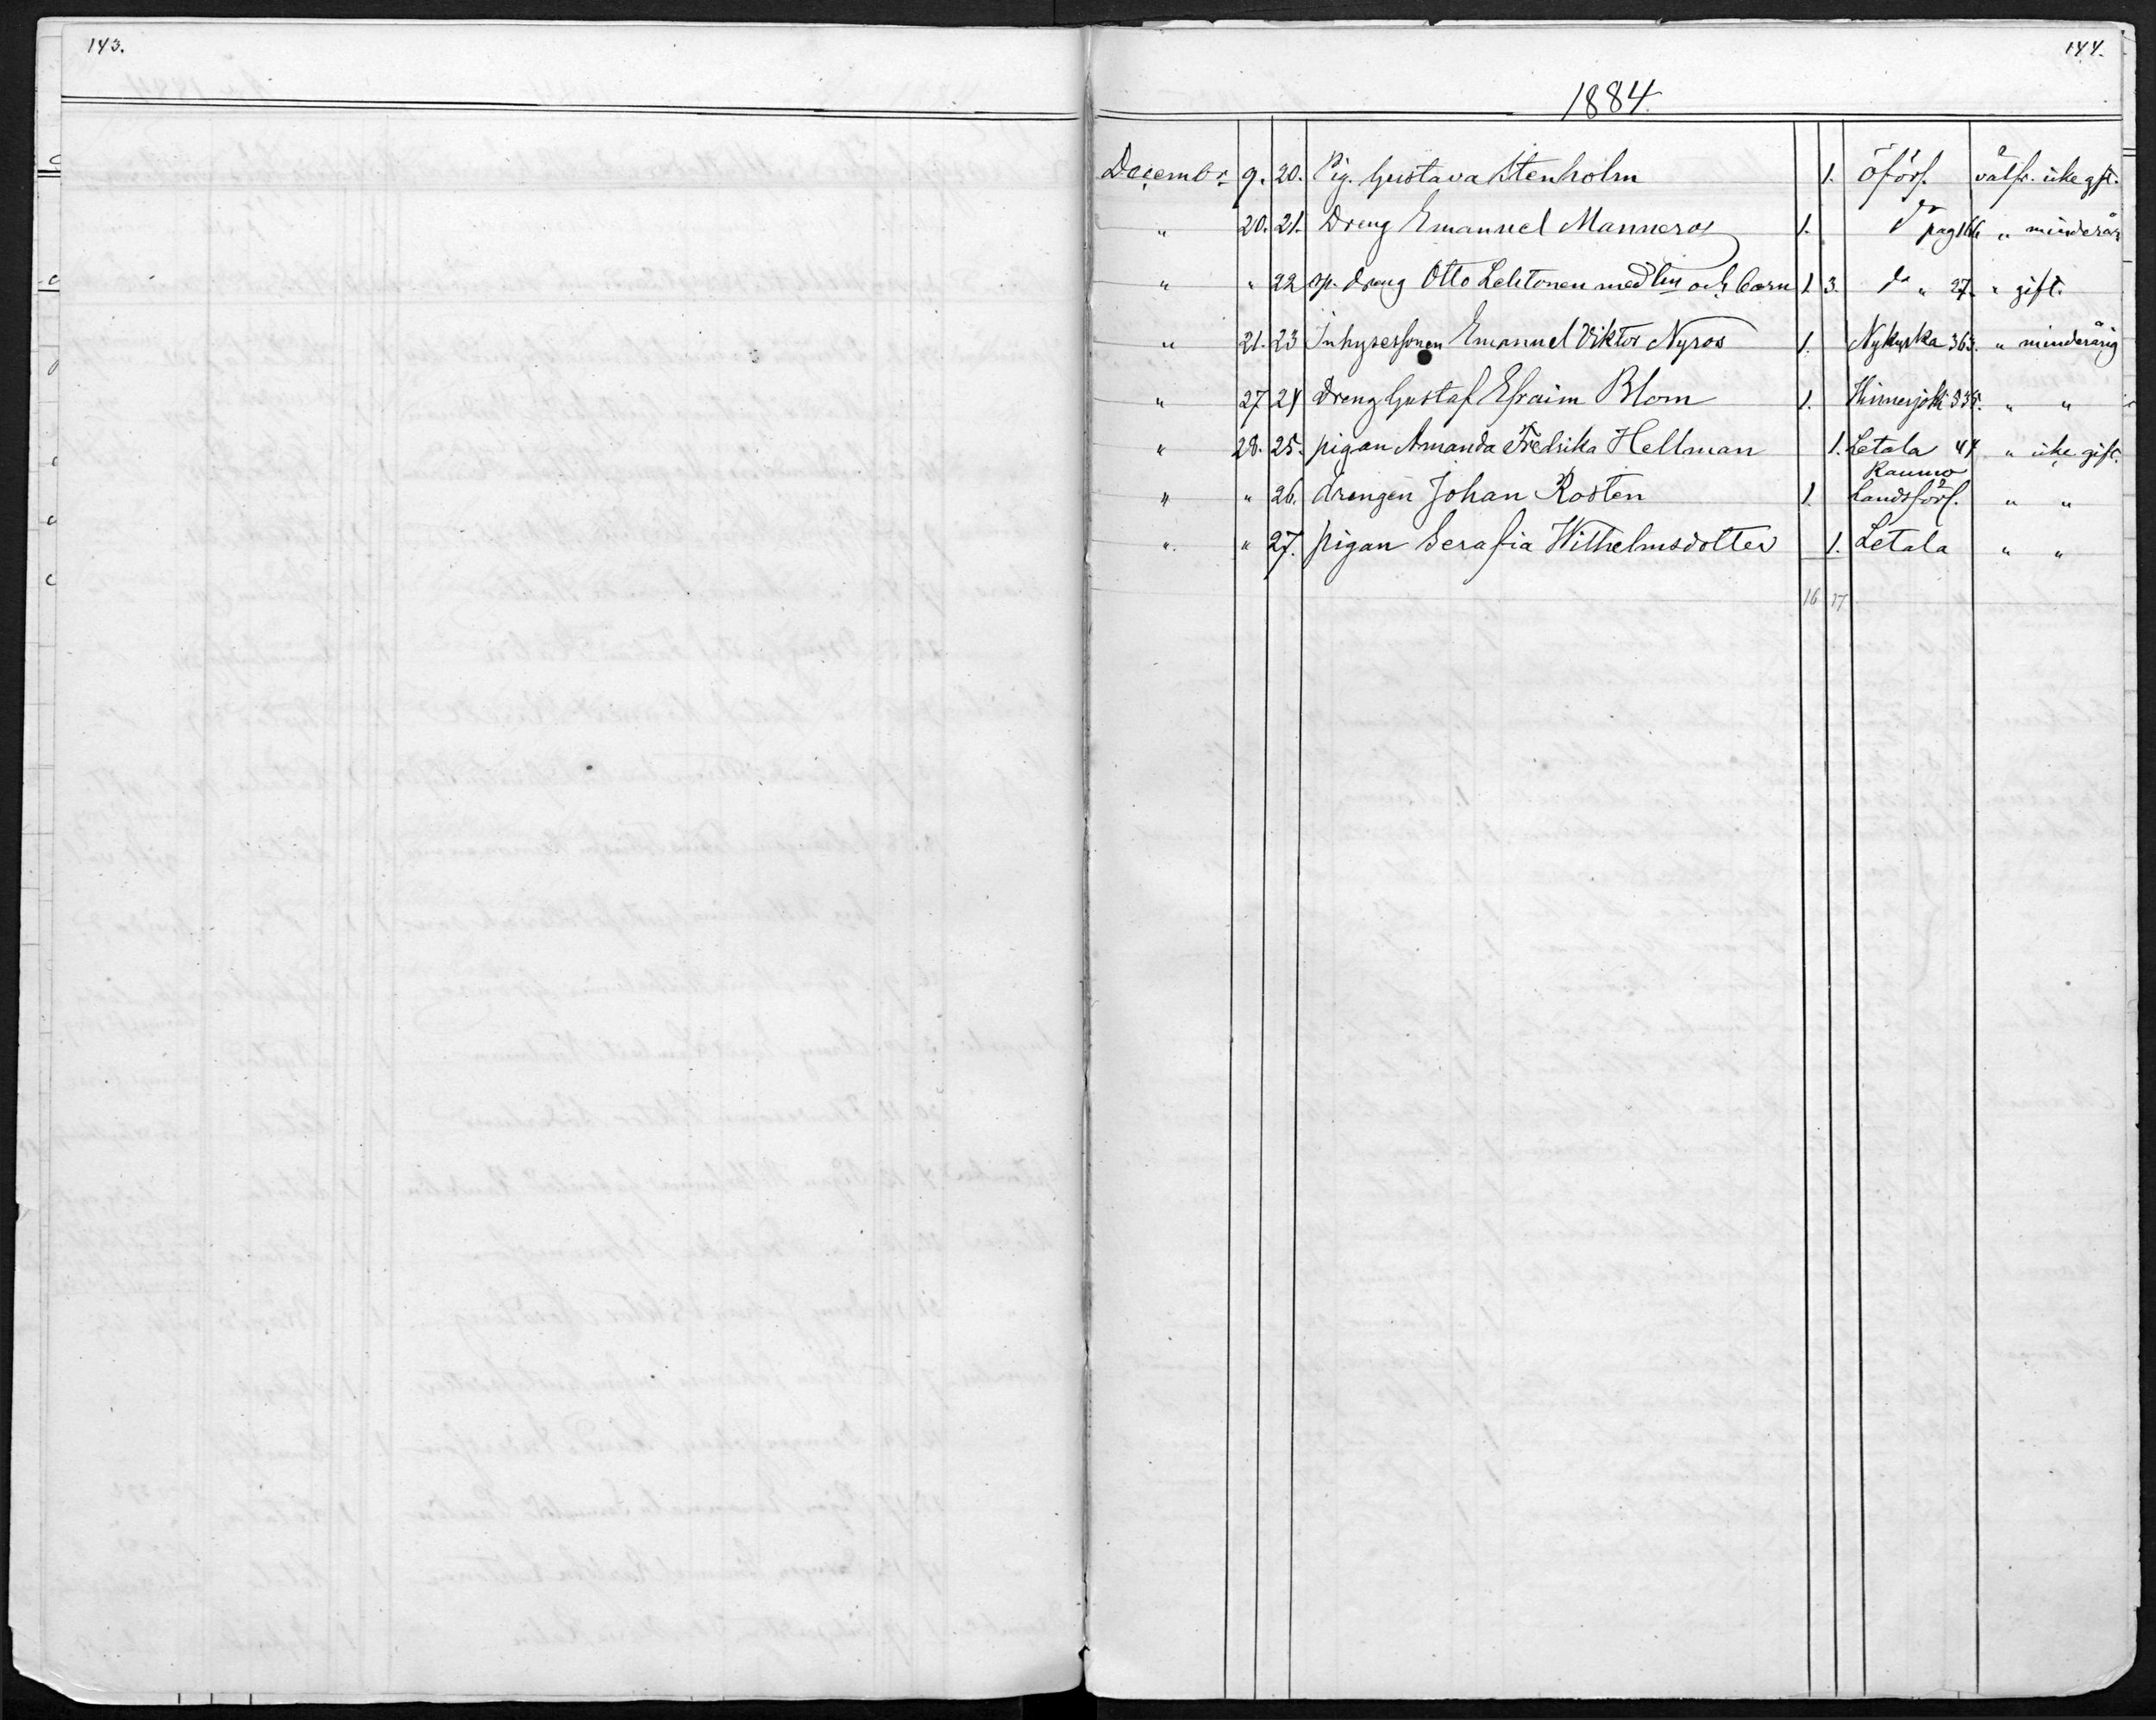 143.
144.
1884.
Decembr. 9. 20. Pig. Gustava Stenholm 1. Öförs. välfr. icke gft.
" 20. 21. Dreng Emanuel Manneros 1. do pag 166 " minderår
" " 22 sp. dreng Otto Lehtonen med hu och barn 1. 3. do " 27. " gift.
" 21. 23 Inhysessonen Emanuel Viktor Nyros 1. Nykyrka 363. " minderårig
" 27 24 Dreng Gustaf Efraim Blom 1. Hinnerjoki 335. " "
" 28. 25. pigan Amanda Fredrika Hellman 1. Letala 44 " icke gift.
" " 26. drengen Johan Rosten 1. Raumo Landsförs. " "
" " 27. pigan Serafia Wilhelmsdotter 1. Letala " "
16 17